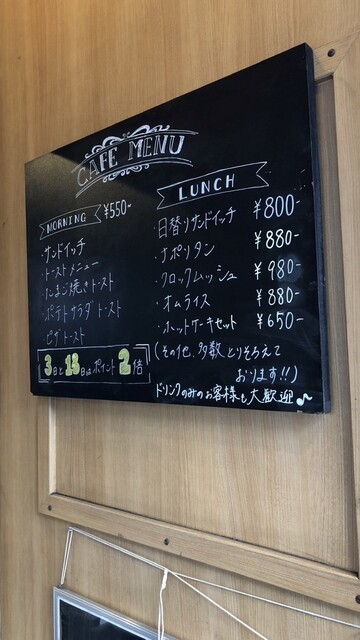 CAFE MENU
MORNING ¥550-
・サンドイッチ
・トーストメニュー
・たまご焼きトースト
・ポテトサラダトースト
・ピザトースト
3日と13日はポイント2倍
LUNCH
・日替りサンドイッチ ¥800-
・ナポリタン ¥880-
・クロックムッシュ ¥980-
・オムライス ¥880-
・ホットケーキセット ¥650-
(その他、多数とりそろえて
おります!!)
ドリンクのみのお客様も大歓迎♪